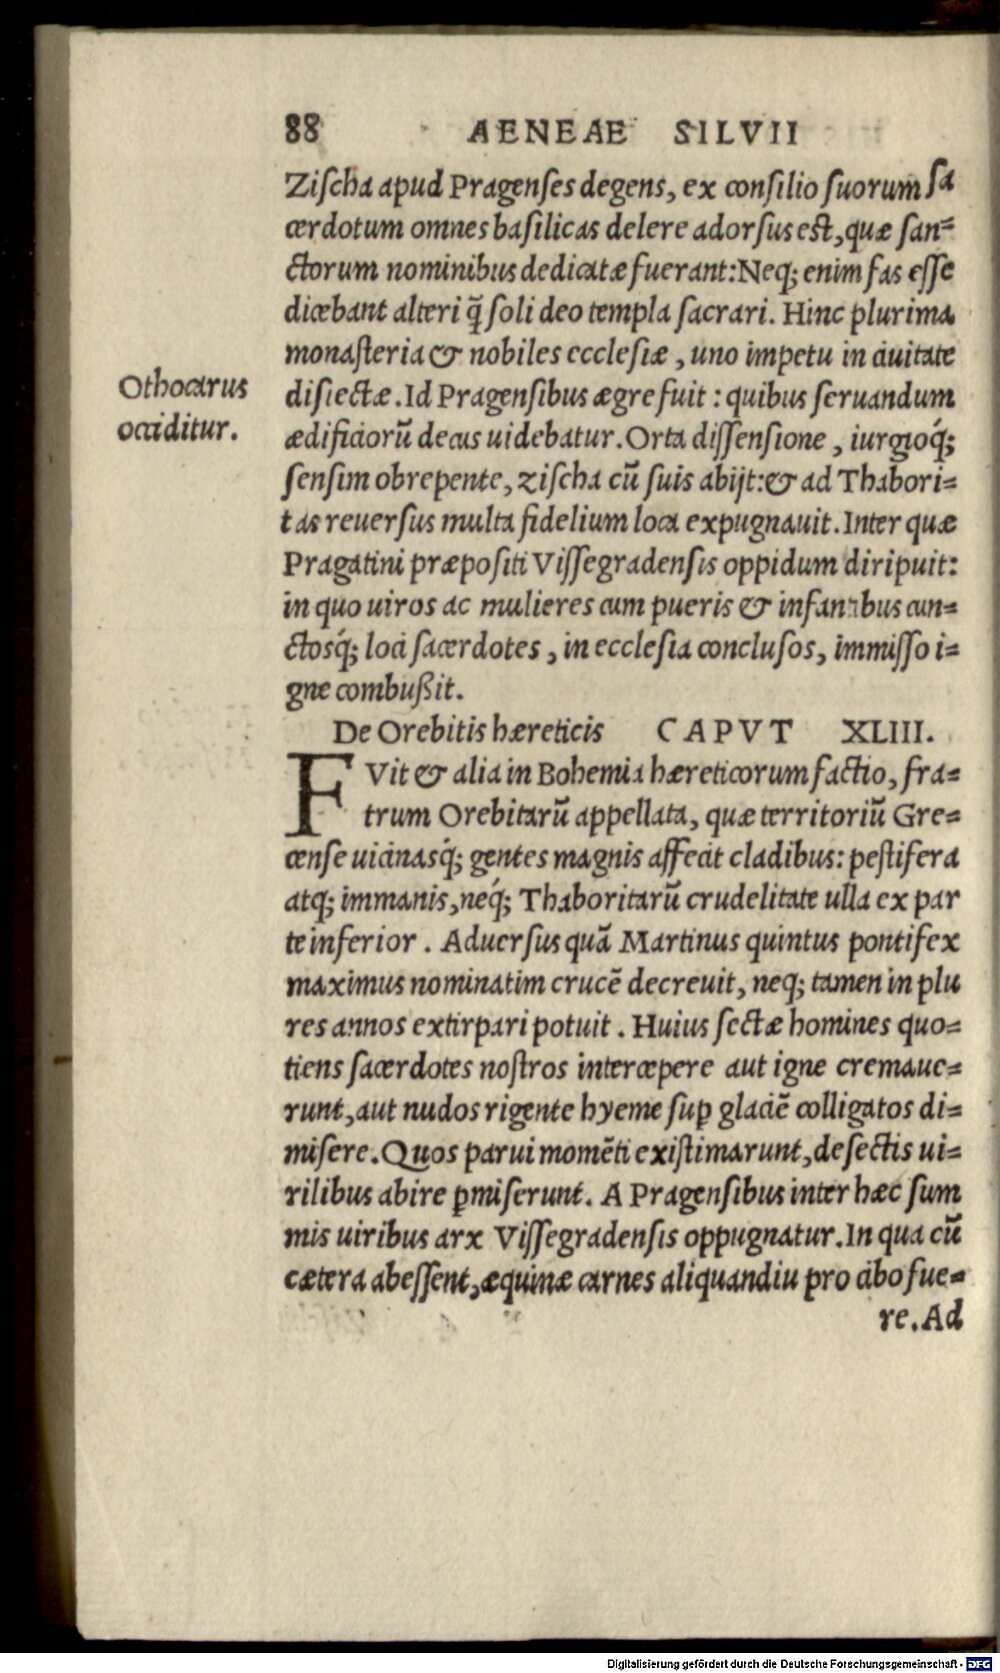 88 AENEAE SILVII
Ziſcha apud Pragenſes degens, ex conſilio ſuorum ſa
cerdotum omnes baſilicas delere adorſus eſt, quæ ſan⸗
ctorum nominibus dedicatæ fuerant: Neq; enim fas eſſe
dicebant alteri q̃ ſoli deo templa ſacrari. Hinc plurima
monaſteria & nobiles eccleſiæ, uno impetu in ciuitate
Othocarus
occiditur.
diſiectæ. Id Pragenſibus ægre fuit: quibus ſeruandum
ædificiorũ decus uidebatur. Orta diſſenſione, iurgioq́;
ſenſim obrepente, ziſcha cũ ſuis abijt: & ad Thabori⸗
tas reuerſus multa fidelium loca expugnauit. Inter quæ
Pragatini præpoſiti Viſſegradenſis oppidum diripuit:
in quo uiros ac mulieres cum pueris & infantibus cun⸗
ctosq́; loci ſacerdotes, in eccleſia concluſos, immiſſo i⸗
gne combußit.
De Orebitis hæreticis CAPVT XLIII.
FVit & alia in Bohemia hæreticorum factio, fra⸗
trum Orebitarũ appellata, quæ territoriũ Gre⸗
cenſe uicinasq́; gentes magnis affecit cladibus: peſtifera
atq; immanis, neq́; Thaboritarũ crudelitate ulla ex par
te inferior. Aduerſus quã Martinus quintus pontifex
maximus nominatim crucẽ decreuit, neq; tamen in plu
res annos extirpari potuit. Huius ſectæ homines quo⸗
tiens ſacerdotes noſtros intercepere aut igne cremaue⸗
runt, aut nudos rigente hyeme ſuꝑ glaciẽ colligatos di⸗
miſere. Quos parui momẽti exiſtimarunt, deſectis ui⸗
rilibus abire ꝑmiſerunt. A Pragenſibus inter hæc ſum
mis uiribus arx Viſſegradenſis oppugnatur. In qua cũ
cætera abeſſent, æquinæ carnes aliquandiu pro cibo fue⸗
re. Ad
Digitalisierung gefördert durch die Deutsche Forschungsgemeinschaft - DFG